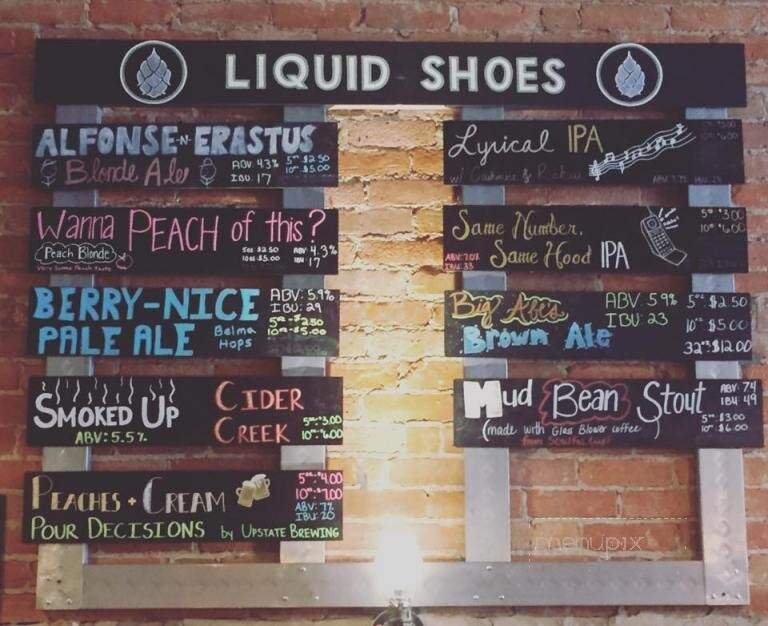 LIQUID SHOES
ALFONSE-N-ERASTUS
Blonde Ale
ABV 4.3%
IBU 17
5oz $2.50
10oz $5.00
Wanna PEACH of this?
Peach Blonde
Very Subtle Peach Taste
5oz $2.50
10oz $5.00
ABV 4.3%
IBU 17
BERRY-NICE
PALE ALE
Belma
Hops
ABV: 5.9%
IBU: 29
5oz-$2.50
10oz-$5.00
SMOKED UP
ABV: 5.5%
CIDER
CREEK
5oz: $3.00
10oz: $6.00
PEACHES + CREAM
POUR DECISIONS by UPSTATE BREWING
5oz: $4.00
10oz: $7.00
ABV: 7%
IBU: 20
Lyrical IPA
w/
Same Number,
Same Hood IPA
ABV: 7.0%
IBU: 33
5oz $3.00
10oz $6.00
Big Abes
Brown Ale
ABV: 5.9%
IBU: 23
5oz: $2.50
10oz $5.00
32oz: $12.00
Mud Bean Stout
(made with Glass Blower coffee)
ABV: 7.4
IBU: 49
5oz $3.00
10oz $6.00
menupix